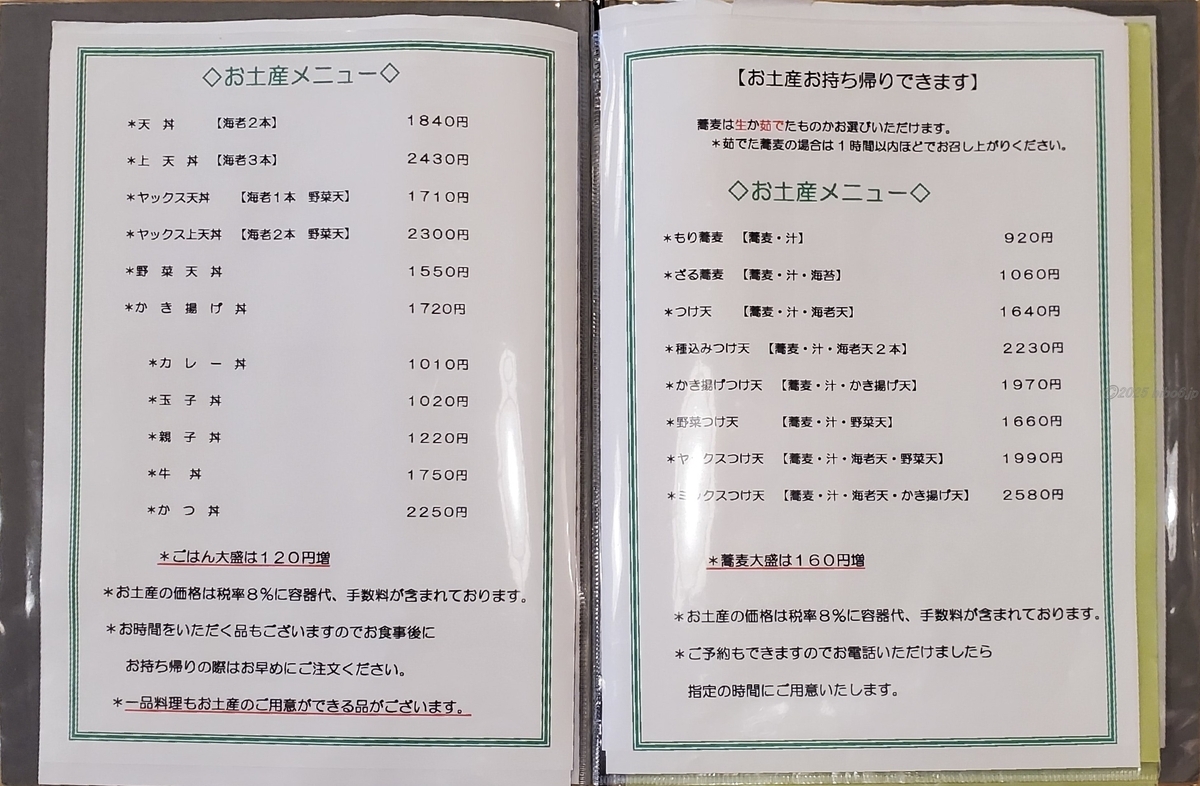 ◇お土産メニュー◇
＊天 丼 【海老２本】 １８４０円
＊上 天 丼 【海老３本】 ２４３０円
＊ヤックス天丼 【海老１本 野菜天】 １７１０円
＊ヤックス上天丼 【海老２本 野菜天】 ２３００円
＊野 菜 天 丼 １５５０円
＊か き 揚 げ 丼 １７２０円
＊カ レ ー 丼 １０１０円
＊玉 子 丼 １０２０円
＊親 子 丼 １２２０円
＊牛 丼 １７５０円
＊か つ 丼 ２２５０円
＊ごはん大盛は１２０円増
＊お土産の価格は税率８％に容器代、手数料が含まれております。
＊お時間をいただく品もございますのでお食事後に
お持ち帰りの際はお早めにご注文ください。
＊一品料理もお土産のご用意ができる品がございます。
【お土産お持ち帰りできます】
蕎麦は生か茹でたものかお選びいただけます。
＊茹でた蕎麦の場合は１時間以内ほどでお召し上がりください。
◇お土産メニュー◇
＊もり蕎麦 【蕎麦・汁】 ９２０円
＊ざる蕎麦 【蕎麦・汁・海苔】 １０６０円
＊つけ天 【蕎麦・汁・海老天】 １６４０円
＊種込みつけ天 【蕎麦・汁・海老天２本】 ２２３０円
＊かき揚げつけ天 【蕎麦・汁・かき揚げ天】 １９７０円
＊野菜つけ天 【蕎麦・汁・野菜天】 １６６０円
＊ヤックスつけ天 【蕎麦・汁・海老天・野菜天】 １９９０円
＊ミックスつけ天 【蕎麦・汁・海老天・かき揚げ天】 ２５８０円
＊蕎麦大盛は１６０円増
＊お土産の価格は税率８％に容器代、手数料が含まれております。
＊ご予約もできますのでお電話いただけましたら
指定の時間にご用意いたします。
©2025